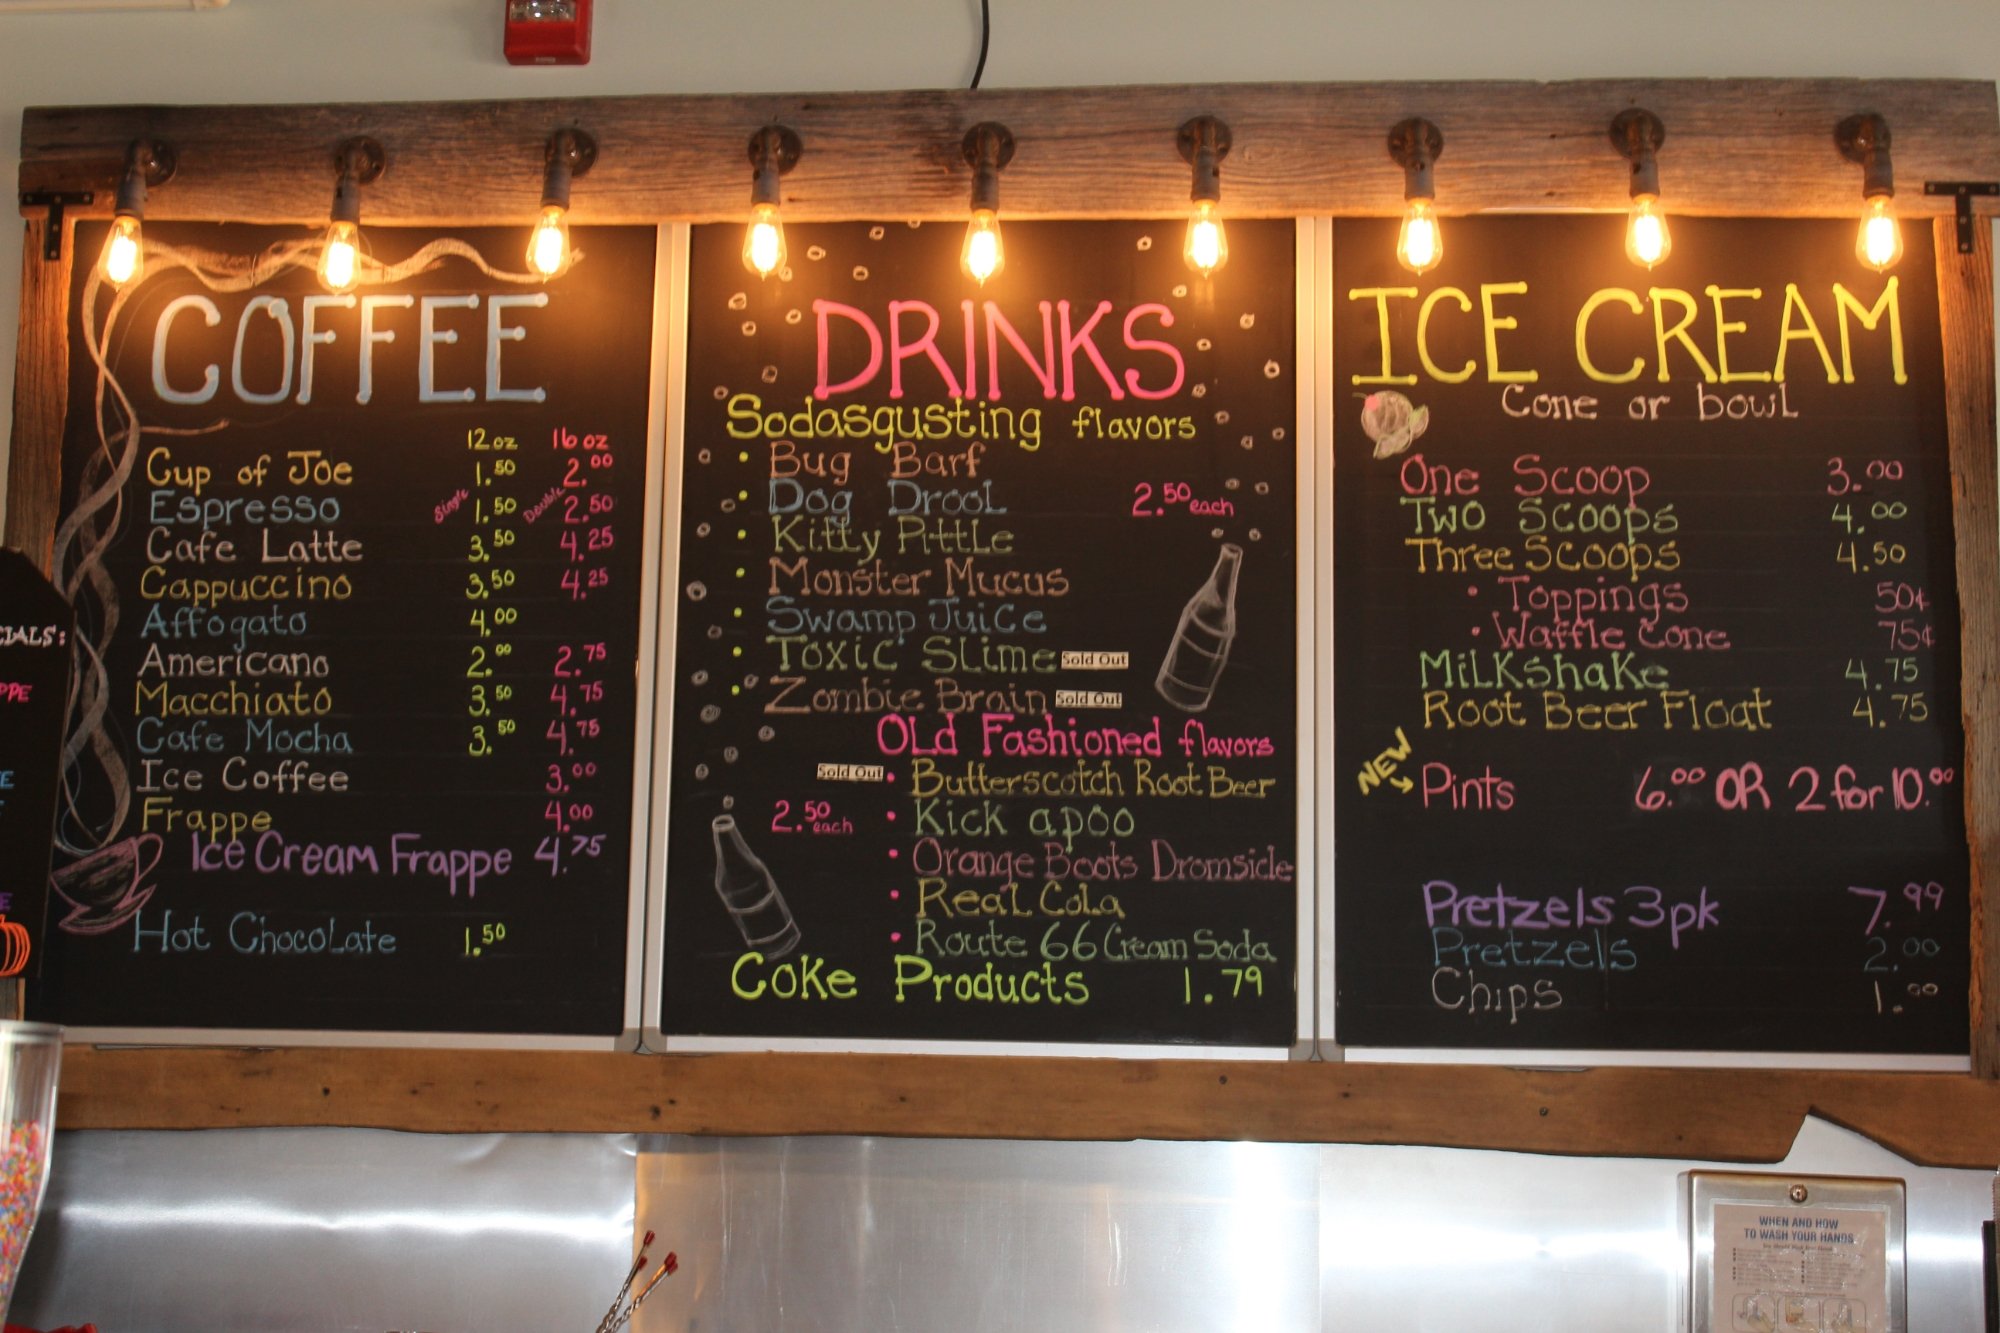 COFFEE
12oz 16oz
Cup of Joe 1.50 2.00
Espresso Single 1.50 Double 2.50
Cafe Latte 3.50 4.25
Cappuccino 3.50 4.25
Affogato 4.00
Americano 2.00 2.75
Macchiato 3.50 4.75
Cafe Mocha 3.50 4.75
Ice Coffee 3.00
Frappe 4.00
Ice Cream Frappe 4.75
Hot Chocolate 1.50
DRINKS
Sodasgusting flavors
• Bug Barf
• Dog Drool 2.50 each
• Kitty Pittle
• Monster Mucus
• Swamp Juice
• Toxic Slime Sold Out
• Zombie Brain Sold Out
Old Fashioned flavors
Sold Out • Butterscotch Root Beer
2.50 each • Kick apoo
• Orange Boots Dromsicle
• Real Cola
• Route 66 Cream Soda
Coke Products 1.79
ICE CREAM
Cone or bowl
One Scoop 3.00
Two Scoops 4.00
Three Scoops 4.50
• Toppings 50¢
• Waffle Cone 75¢
Milkshake 4.75
Root Beer Float 4.75
NEW Pints 6.00 OR 2 for 10.00
Pretzels 3pk 7.99
Pretzels 2.00
Chips 1.00
CIALS:
PPE
E
E
WHEN AND HOW
TO WASH YOUR HANDS